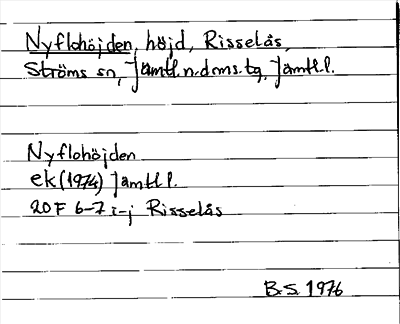 Nyflohöjden, höjd, Risselås,
Ströms sn, Jämtl.n.doms.tg, Jämtl.l.
Nyflohöjden
ek (1974) Jämtl.l.
20F 6-7 i-j Risselås
B.S. 1976